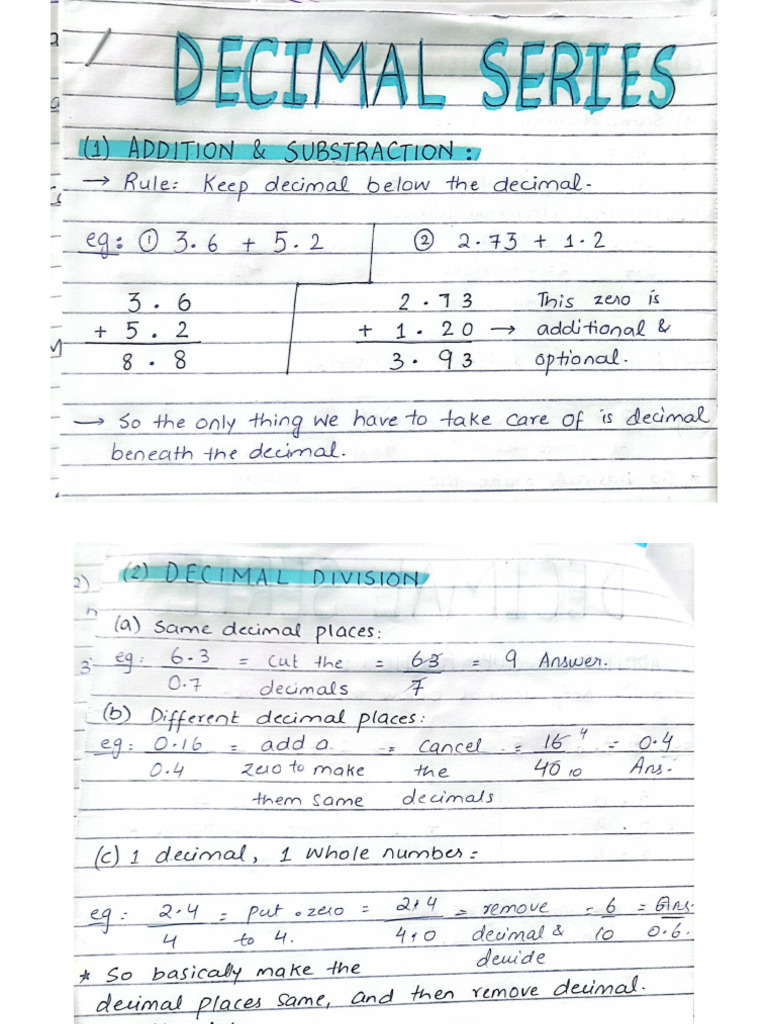 DECIMAL SERIES
(1) ADDITION & SUBSTRACTION :
→ Rule: Keep decimal below the decimal.
eg: ① 3.6 + 5.2
3.6
+ 5.2
8.8
② 2.73 + 1.2
2.73
+ 1.20 → This zero is additional & optional.
3.93
→ So the only thing we have to take care of is decimal
beneath the decimal.
(2) DECIMAL DIVISION
(a) Same decimal places:
eg: 6.3 / 0.7 = cut the decimals = 63 / 7 = 9 Answer.
(b) Different decimal places:
eg: 0.16 / 0.4 = add a zero to make them same = cancel the decimals = 16 4 / 40 10 = 0.4 Ans.
(c) 1 decimal, 1 whole number:
eg: 2.4 / 4 = put .zero to 4. = 2.4 / 4.0 = remove decimal & devide = 6 / 10 = Ans. 0.6.
* So basically make the
decimal places same, and then remove decimal.